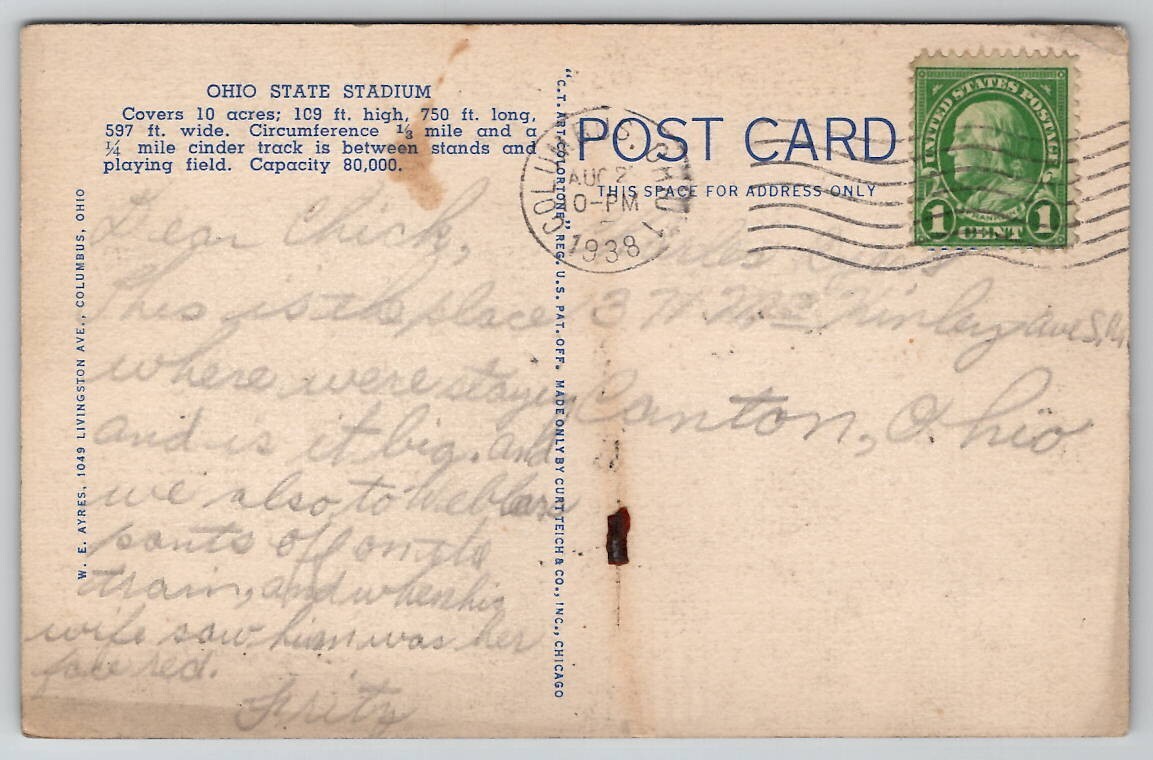 OHIO STATE STADIUM
Covers 10 acres; 109 ft. high, 750 ft. long,
597 ft. wide. Circumference ⅓ mile and a
¼ mile cinder track is between stands and
playing field. Capacity 80,000.
W. E. AYRES, 1049 LIVINGSTON AVE., COLUMBUS, OHIO
Dear Chick,
This is the place
where were staying
and is it big. and
we also to
pants off on the
train, and when his
wife saw him was her
face red.
Fritz
"C.T. ART-COLORTONE" REG. U.S. PAT. OFF. MADE ONLY BY CURT TEICH & CO., INC., CHICAGO
POST CARD
THIS SPACE FOR ADDRESS ONLY
COLUMBUS, OHIO
AUG 2
0-PM
1938
UNITED STATES POSTAGE
FRANKLIN
1 CENT 1
Mc Kinley ave S.
Canton, Ohio